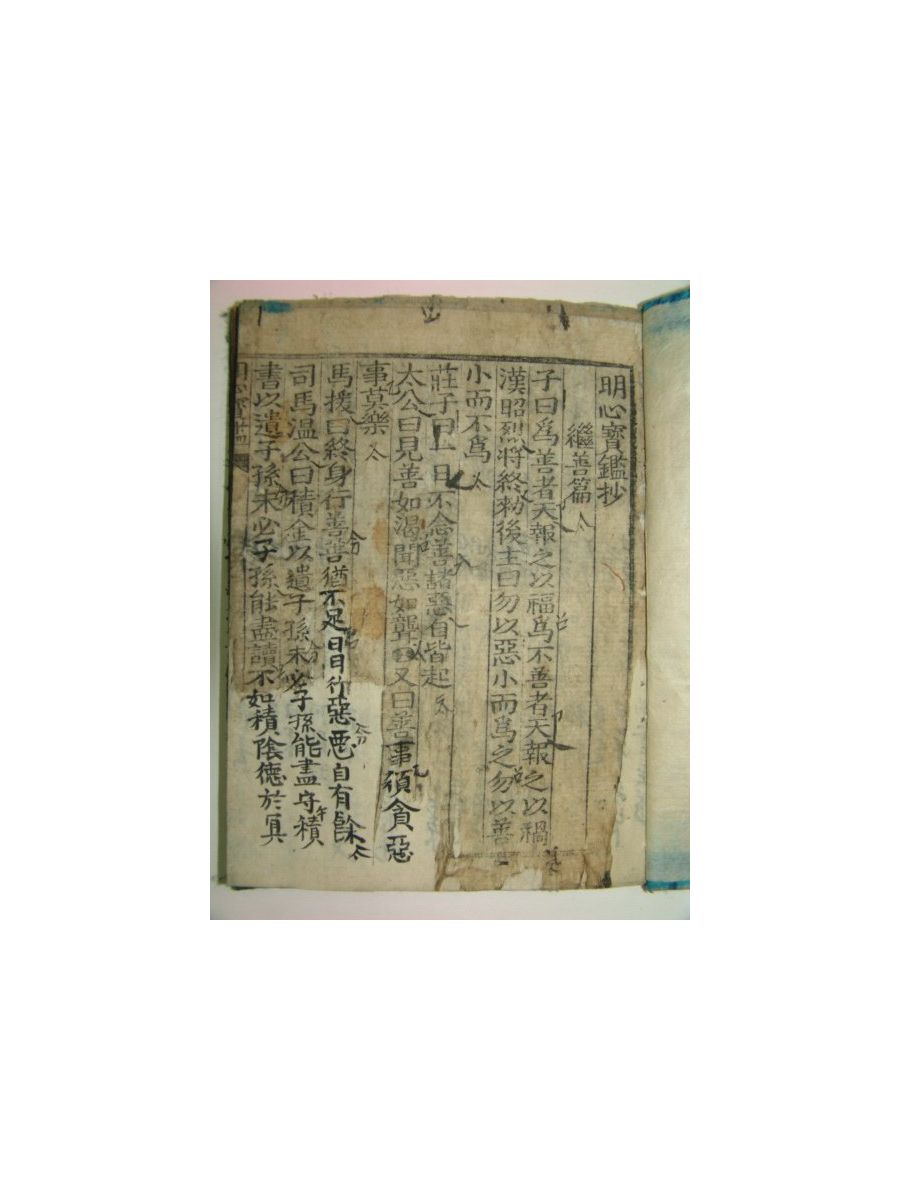 明心寶鑑抄
繼善篇
子曰爲善者天報之以福爲不善者天報之以禍
漢昭烈將終勑後主曰勿以惡小而爲之勿以善
小而不爲
莊子曰一日不念善諸惡自皆起
太公曰見善如渴聞惡如聾又曰善事須貪惡
事莫樂
馬援曰終身行善善猶不足一日行惡惡自有餘
司馬温公曰積金以遺子孫未必子孫能盡守積
書以遺子孫未必子孫能盡讀不如積陰德於冥
明心寶鑑